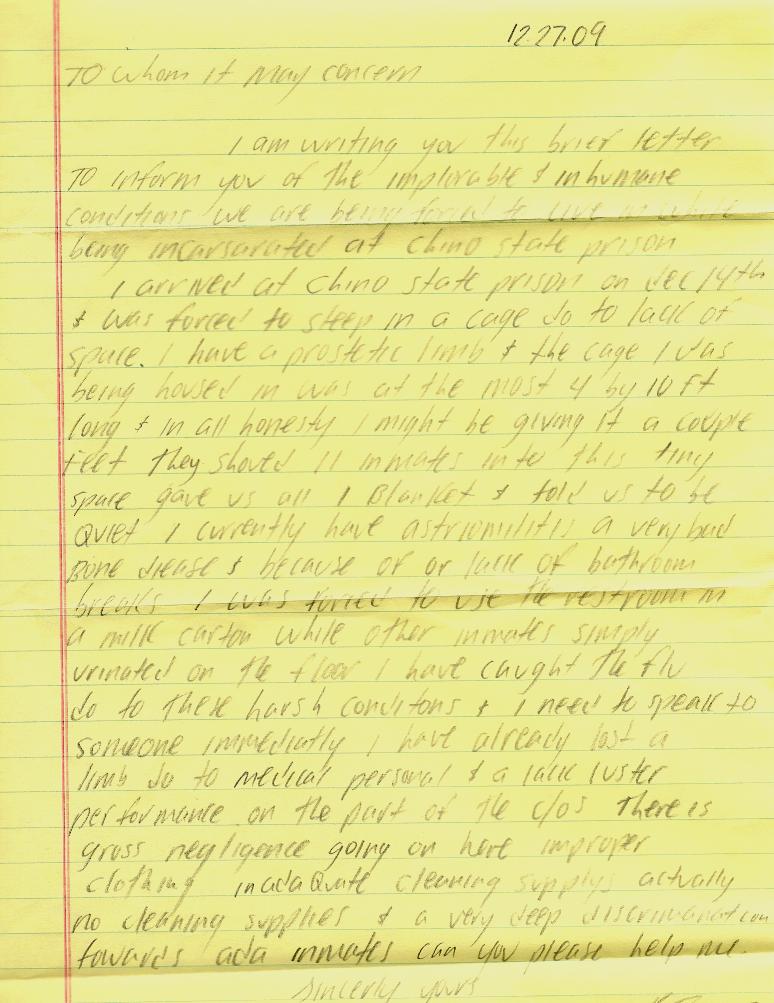 12.27.09
To whom it may concern
I am writing you this brief letter
To inform you of the implorable & inhumane
conditions we are being forced to live in while
being incarsarated at chino state prison
I arrived at chino state prison on dec 14th
& was forced to sleep in a cage do to lack of
space. I have a prostetic limb & the cage I was
being housed in was at the most 4 by 10 ft
long & in all honesty I might be giving it a couple
feet They shoved 11 inmates into this tiny
space gave us all 1 Blanket & told us to be
Quiet I currently have astriomilitis a very bad
Bone diease & because of or lack of bathroom
breaks I was forced to use the restroom in
a milk carton while other inmates simply
urinated on the floor I have caught the flu
do to these harsh conditons & I need to speak to
someone immediatly I have already lost a
limb do to medical personal & a lack luster
performance on the part of the c/os There is
gross negligence going on here improper
clothing inadaQuate cleaning supplys actually
no cleaning supplies & a very deep discrimanation
towards ada inmates can you please help me.
Sincerly yours